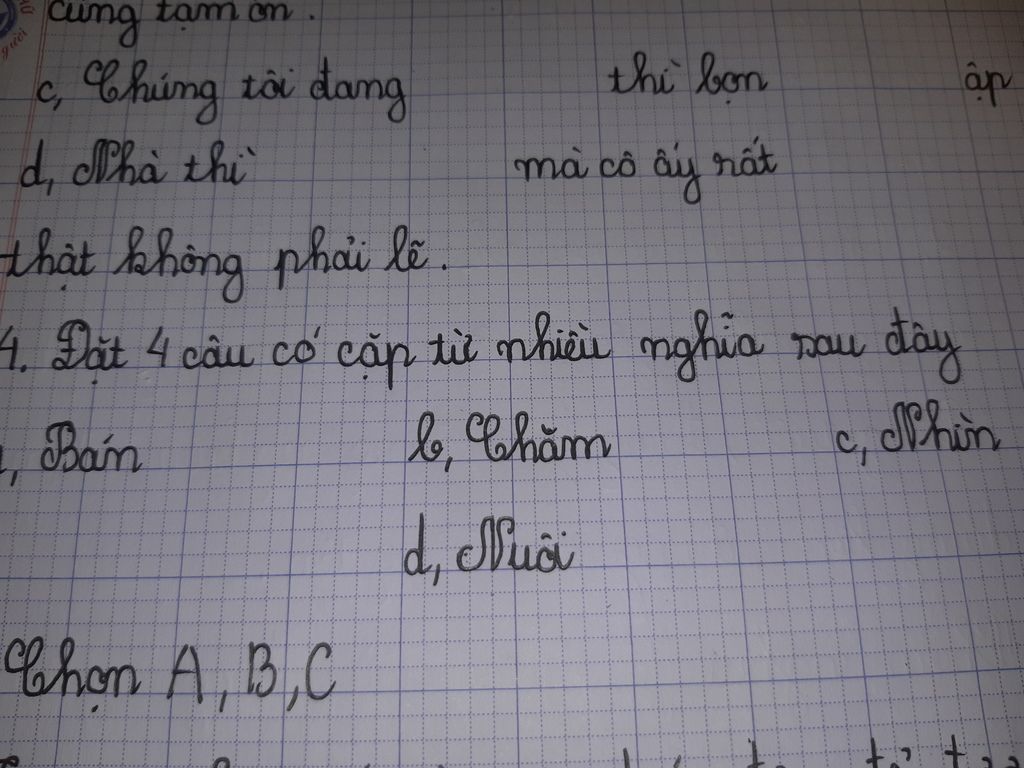 cũng tạm ổn.
c, Chúng tôi đang thì bọn ập
d, Nhà thì mà cô ấy rất
thật không phải lẽ.
4. Đặt 4 câu có cặp từ nhiều nghĩa sau đây
, Bán b, Chăm c, Nhìn
d, Nuôi
Chọn A, B, C